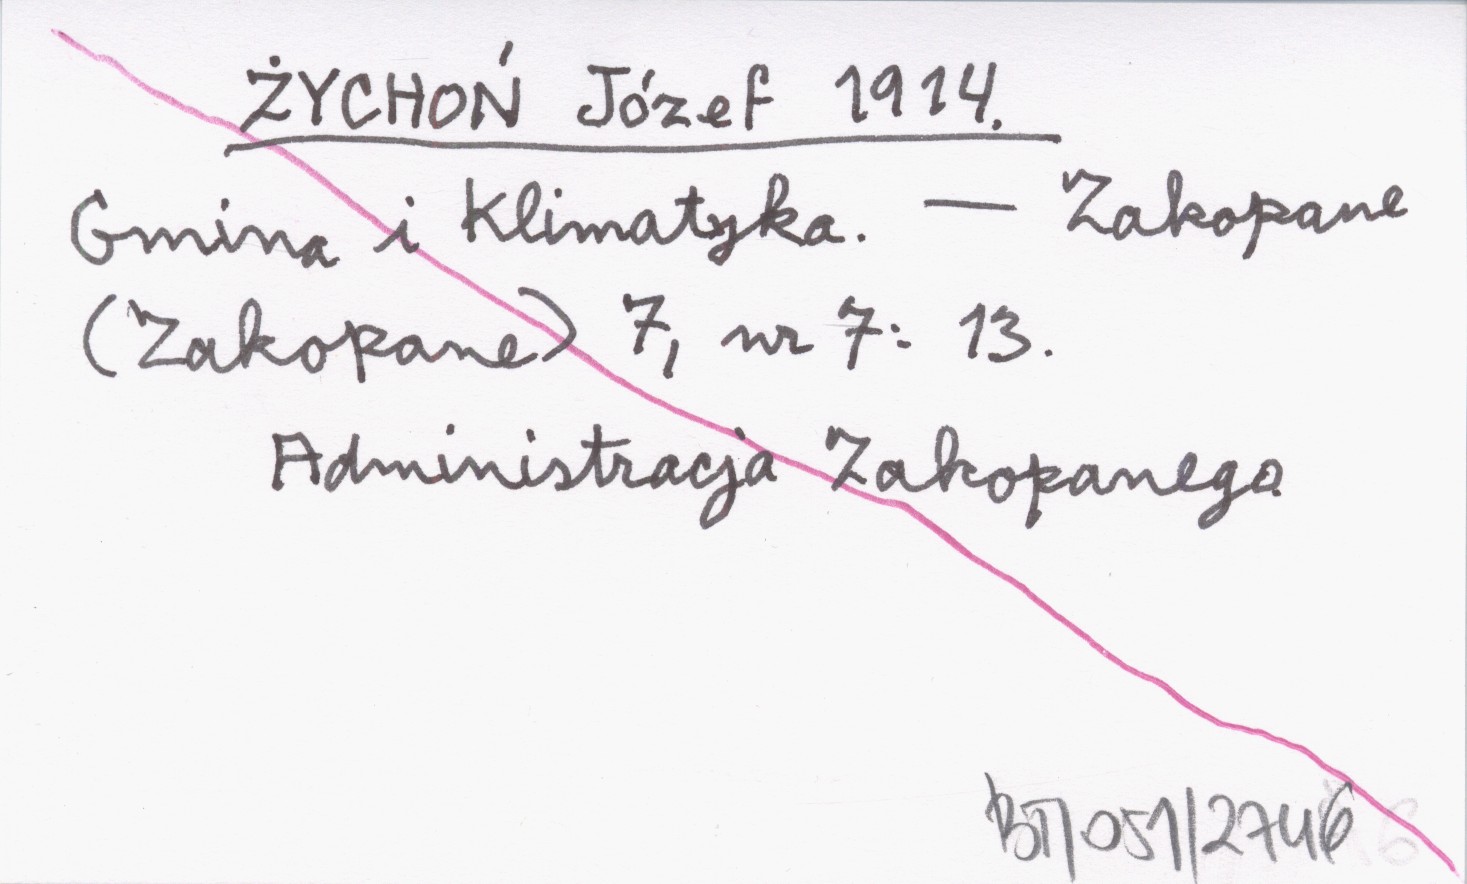 ŻYCHOŃ Józef 1914.
Gmina i Klimatyka. — Zakopane
(Zakopane) 7, nr 7: 13.
Administracja Zakopanego.
BT/051/2746